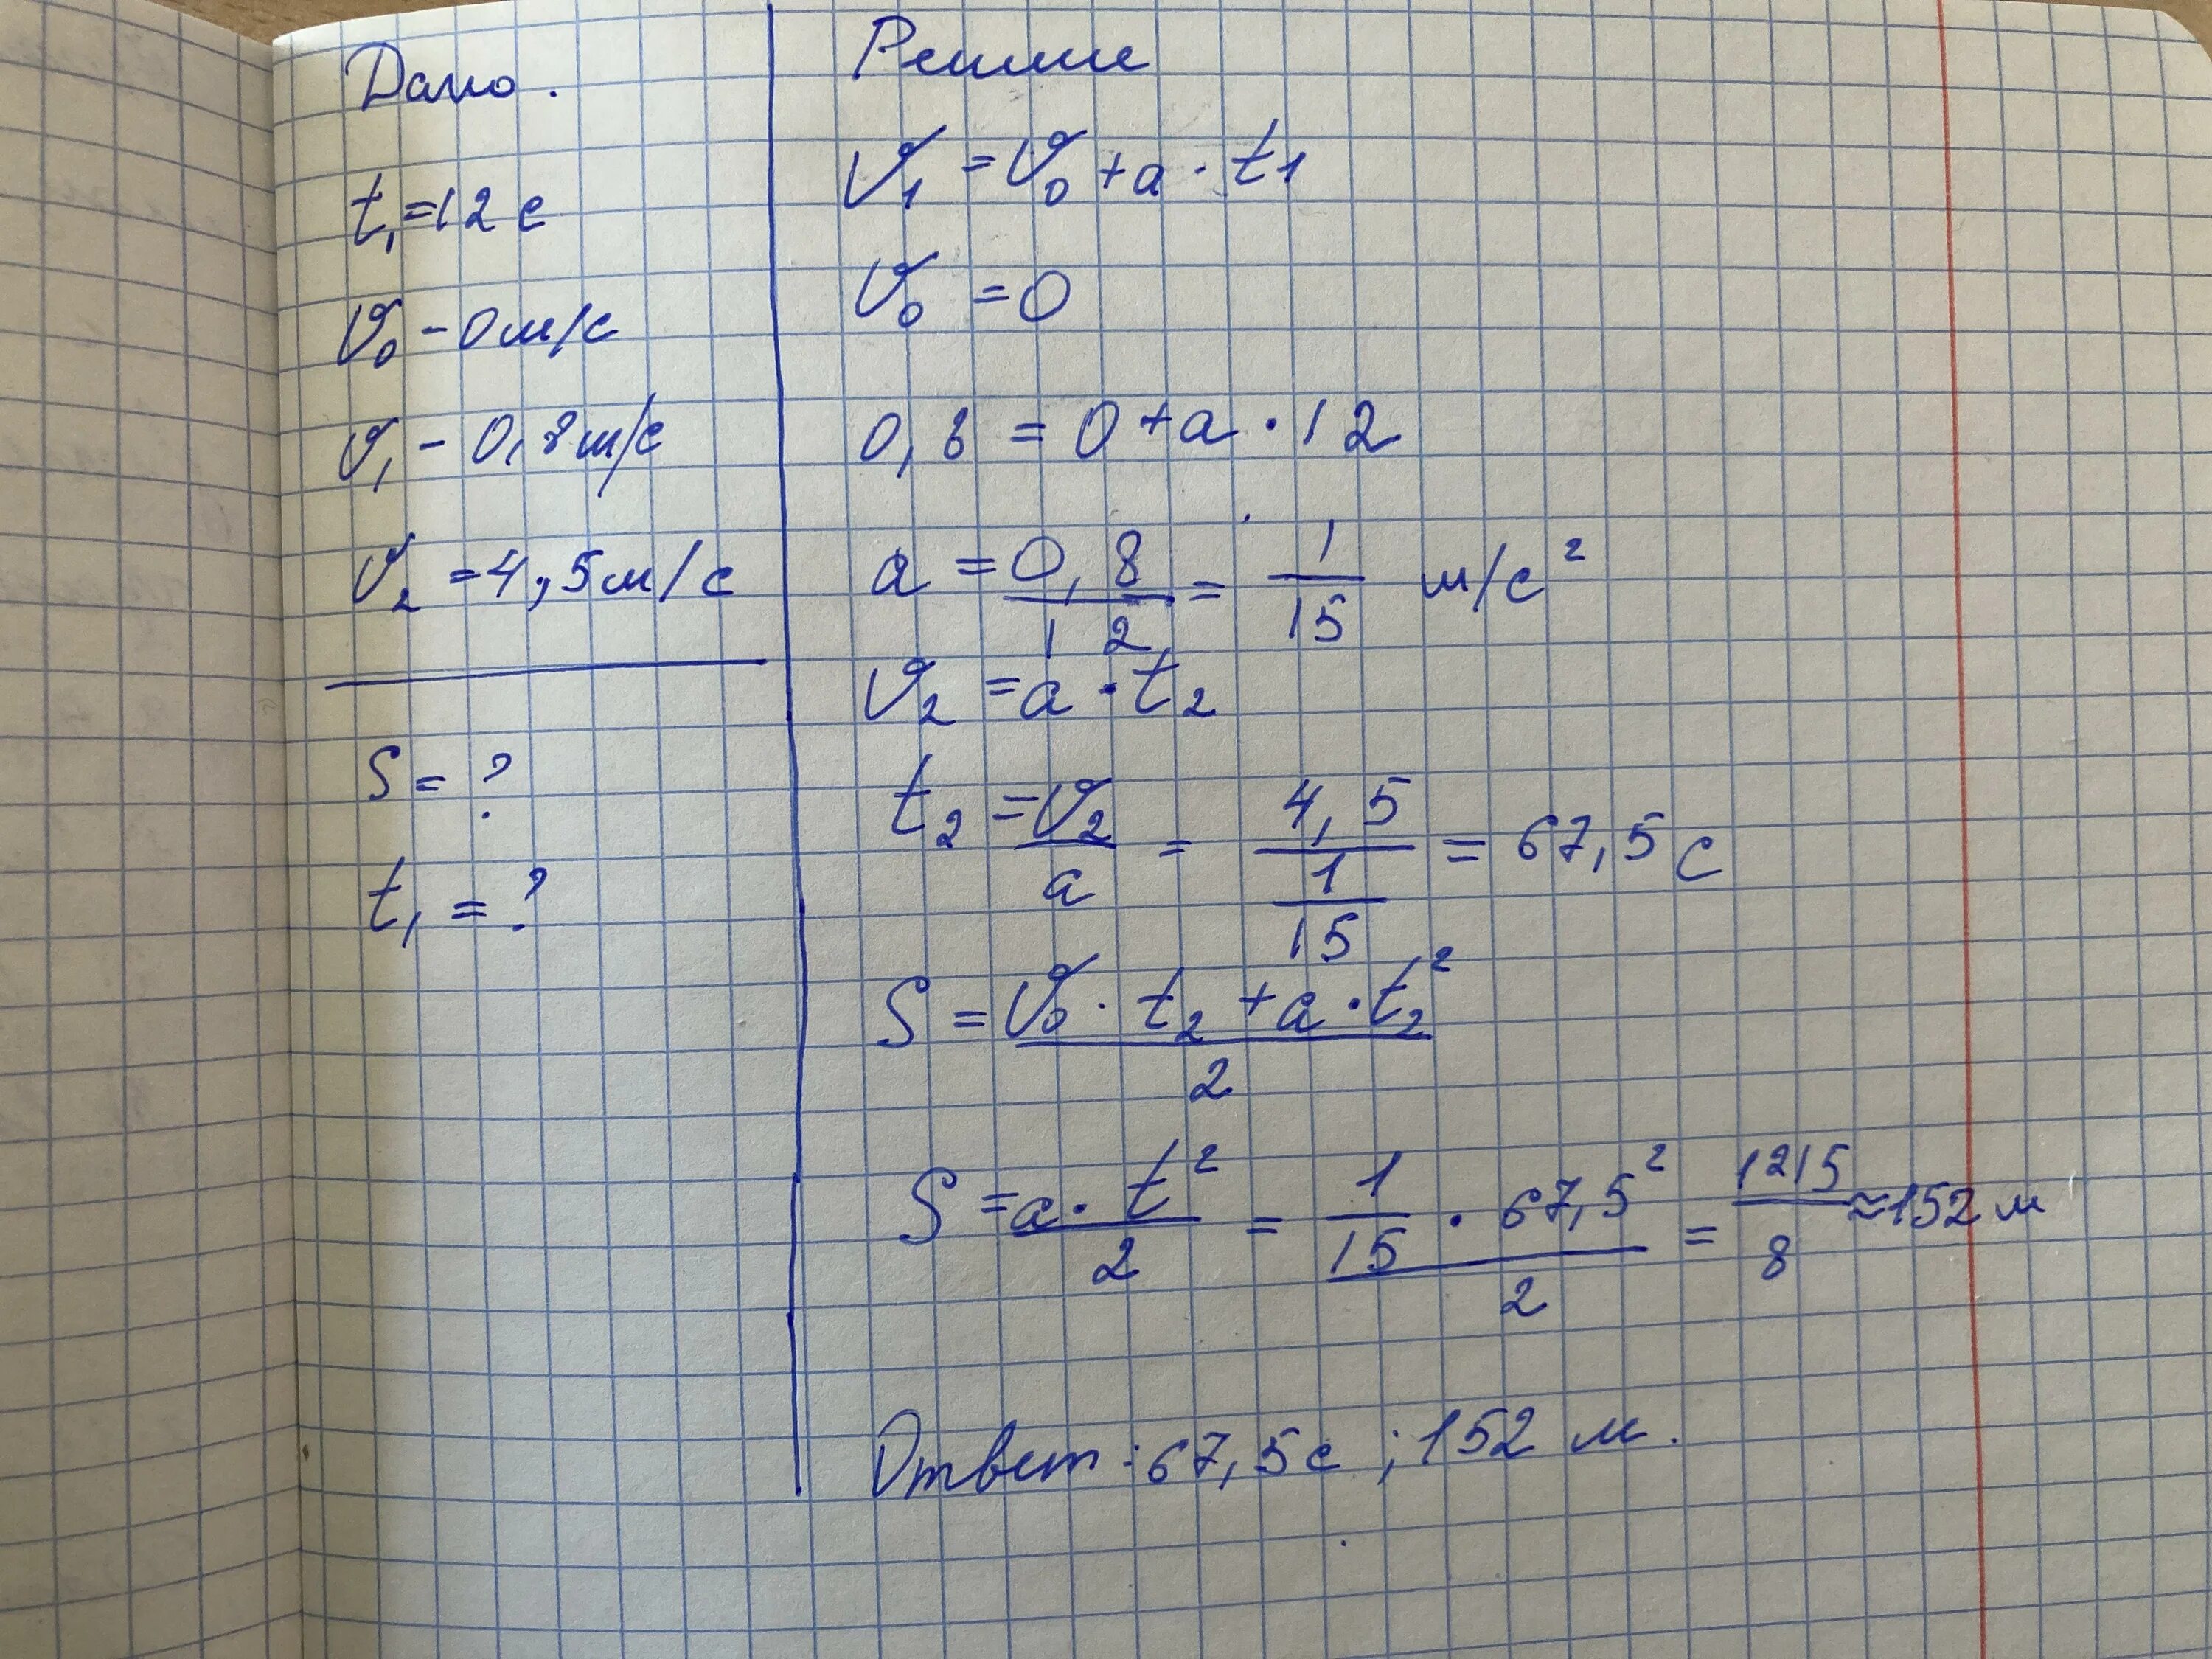 Дано.
t₁=12 с
v₀ – 0 м/с
v₁ – 0,8 м/с
v₂ = 4,5 м/с
S = ?
t₁ = ?
Решние
v₁ = v₀ + a · t1
v₀ = 0
0,8 = 0 + a · 12
a = 0,8/12 = 1/15 м/с²
v₂ = a · t₂
t₂ = v₂/a = 4,5/(1/15) = 67,5 с
S = (v₀ · t₂ + a · t₂²)/2
S = (a · t²)/2 = (1/15 · 67,5²)/2 = 1215/8 ≈ 152 м
Ответ: 67,5 с ; 152 м.